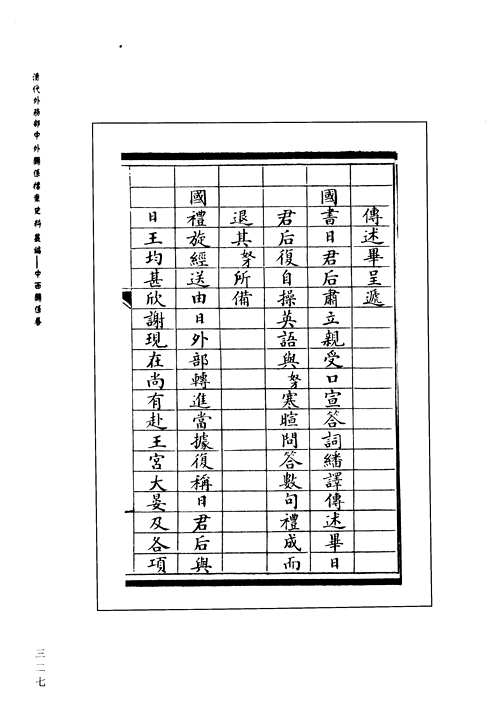 傳述畢呈遞
國書日君后肅立親受口宣答詞繙譯傳述畢日
君后復自操英語與努寒暄問答數句禮成而
退其努所備
國禮旋經送由日外部轉進當據復稱日君后與
日王均甚欣謝現在尚有赴王宮大宴及各項
清代外務部中外關係檔案史料叢編——中西關係卷
三二七